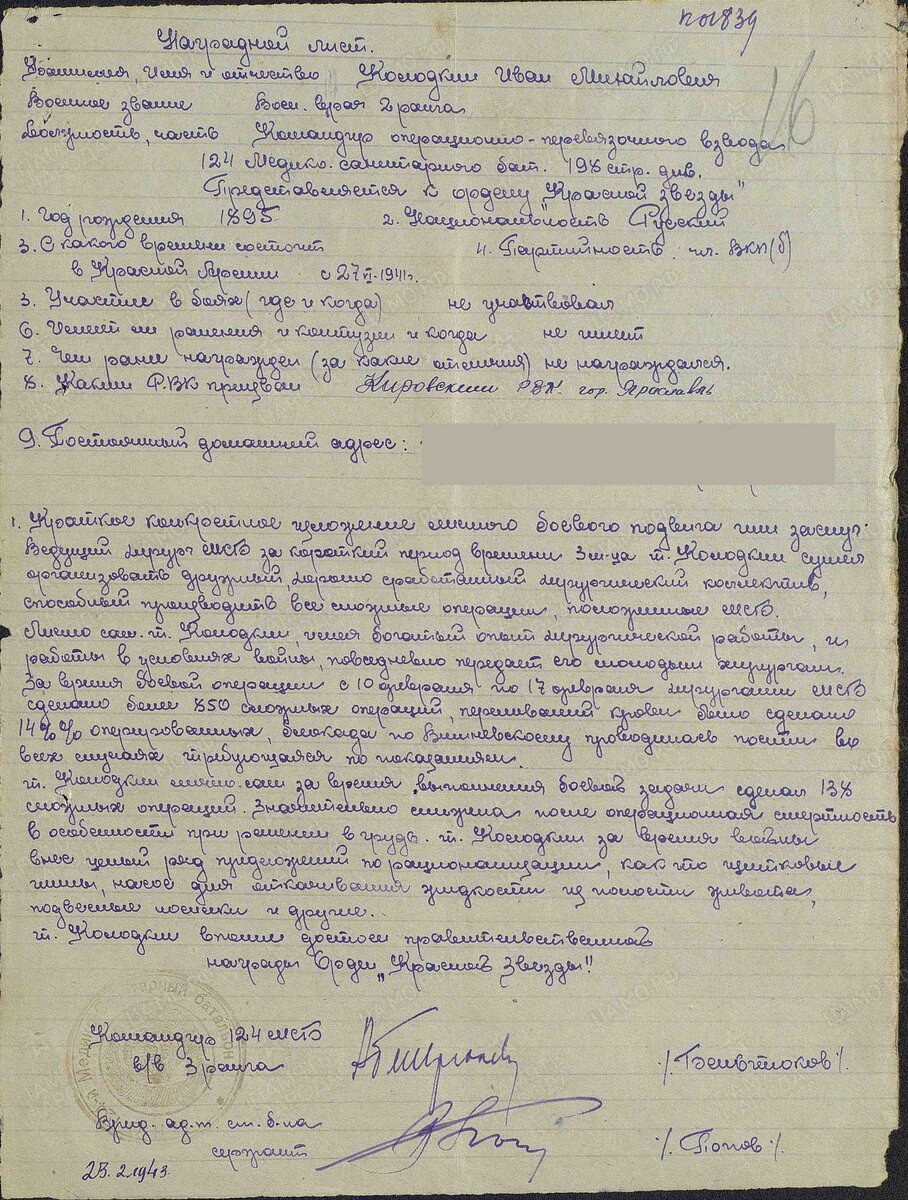 по1839
16
Наградной лист.
Фамилия, имя и отчество Колодкин Иван Михайлович
Военное звание Воен. врач 2 ранга
Должность, часть Командир операционно-перевязочного взвода
124 Медико-санитарного бат. 198 стр. див.
Представляется к ордену „Красной звезды"
1. Год рождения 1895 2. Национальность Русский
3. С какого времени состоит 4. Партийность чл. ВКП(б)
в Красной Армии с 27 VI-1941г.
5. Участие в боях (где и когда) не участвовал
6. Имеет ли ранения и контузии и когда не имеет
7. Чем ранее награжден (за какие отличия) не награждался.
8. Каким РВК призван Кировским РВК. гор. Ярославль
9. Постоянный домашний адрес:
1. Краткое конкретное изложение личного боевого подвига или заслуг.
Ведущий хирург МСБ за короткий период времени 3 м-ца т. Колодкин сумел
организовать дружный, хорошо сработанный хирургический коллектив,
способный производить все сложные операции, положенные МСБ.
Лично сам т. Колодкин, имея богатый опыт хирургической работы, и
работы в условиях войны, повседневно передает его молодым хирургам.
За время боевой операции с 10 февраля по 17 февраля хирургами МСБ
сделано более 850 сложных операций, переливаний крови было сделано
14%% оперированных, блокада по Вишневскому проводилась почти во
всех случаях требующаяся по показаниям.
т. Колодкин лично сам за время выполнения боевой задачи сделал 138
сложных операций. Значительно снижена после операционная смертность
в особенности при ранении в грудь. т. Колодкин за время войны
внес целый ряд предложений по рационализации, как то щитковые
шины, насос для откачивания жидкости из полости живота,
подвесные носилки и другие.
т. Колодкин вполне достоин правительственной
награды Орден „Красной Звезды"!
Командир 124 МСБ
в/в 3 ранга /. Бельтюков /.
Врид. ад.т. ст. б-на
сержант /. Попов /.
25.2.1943